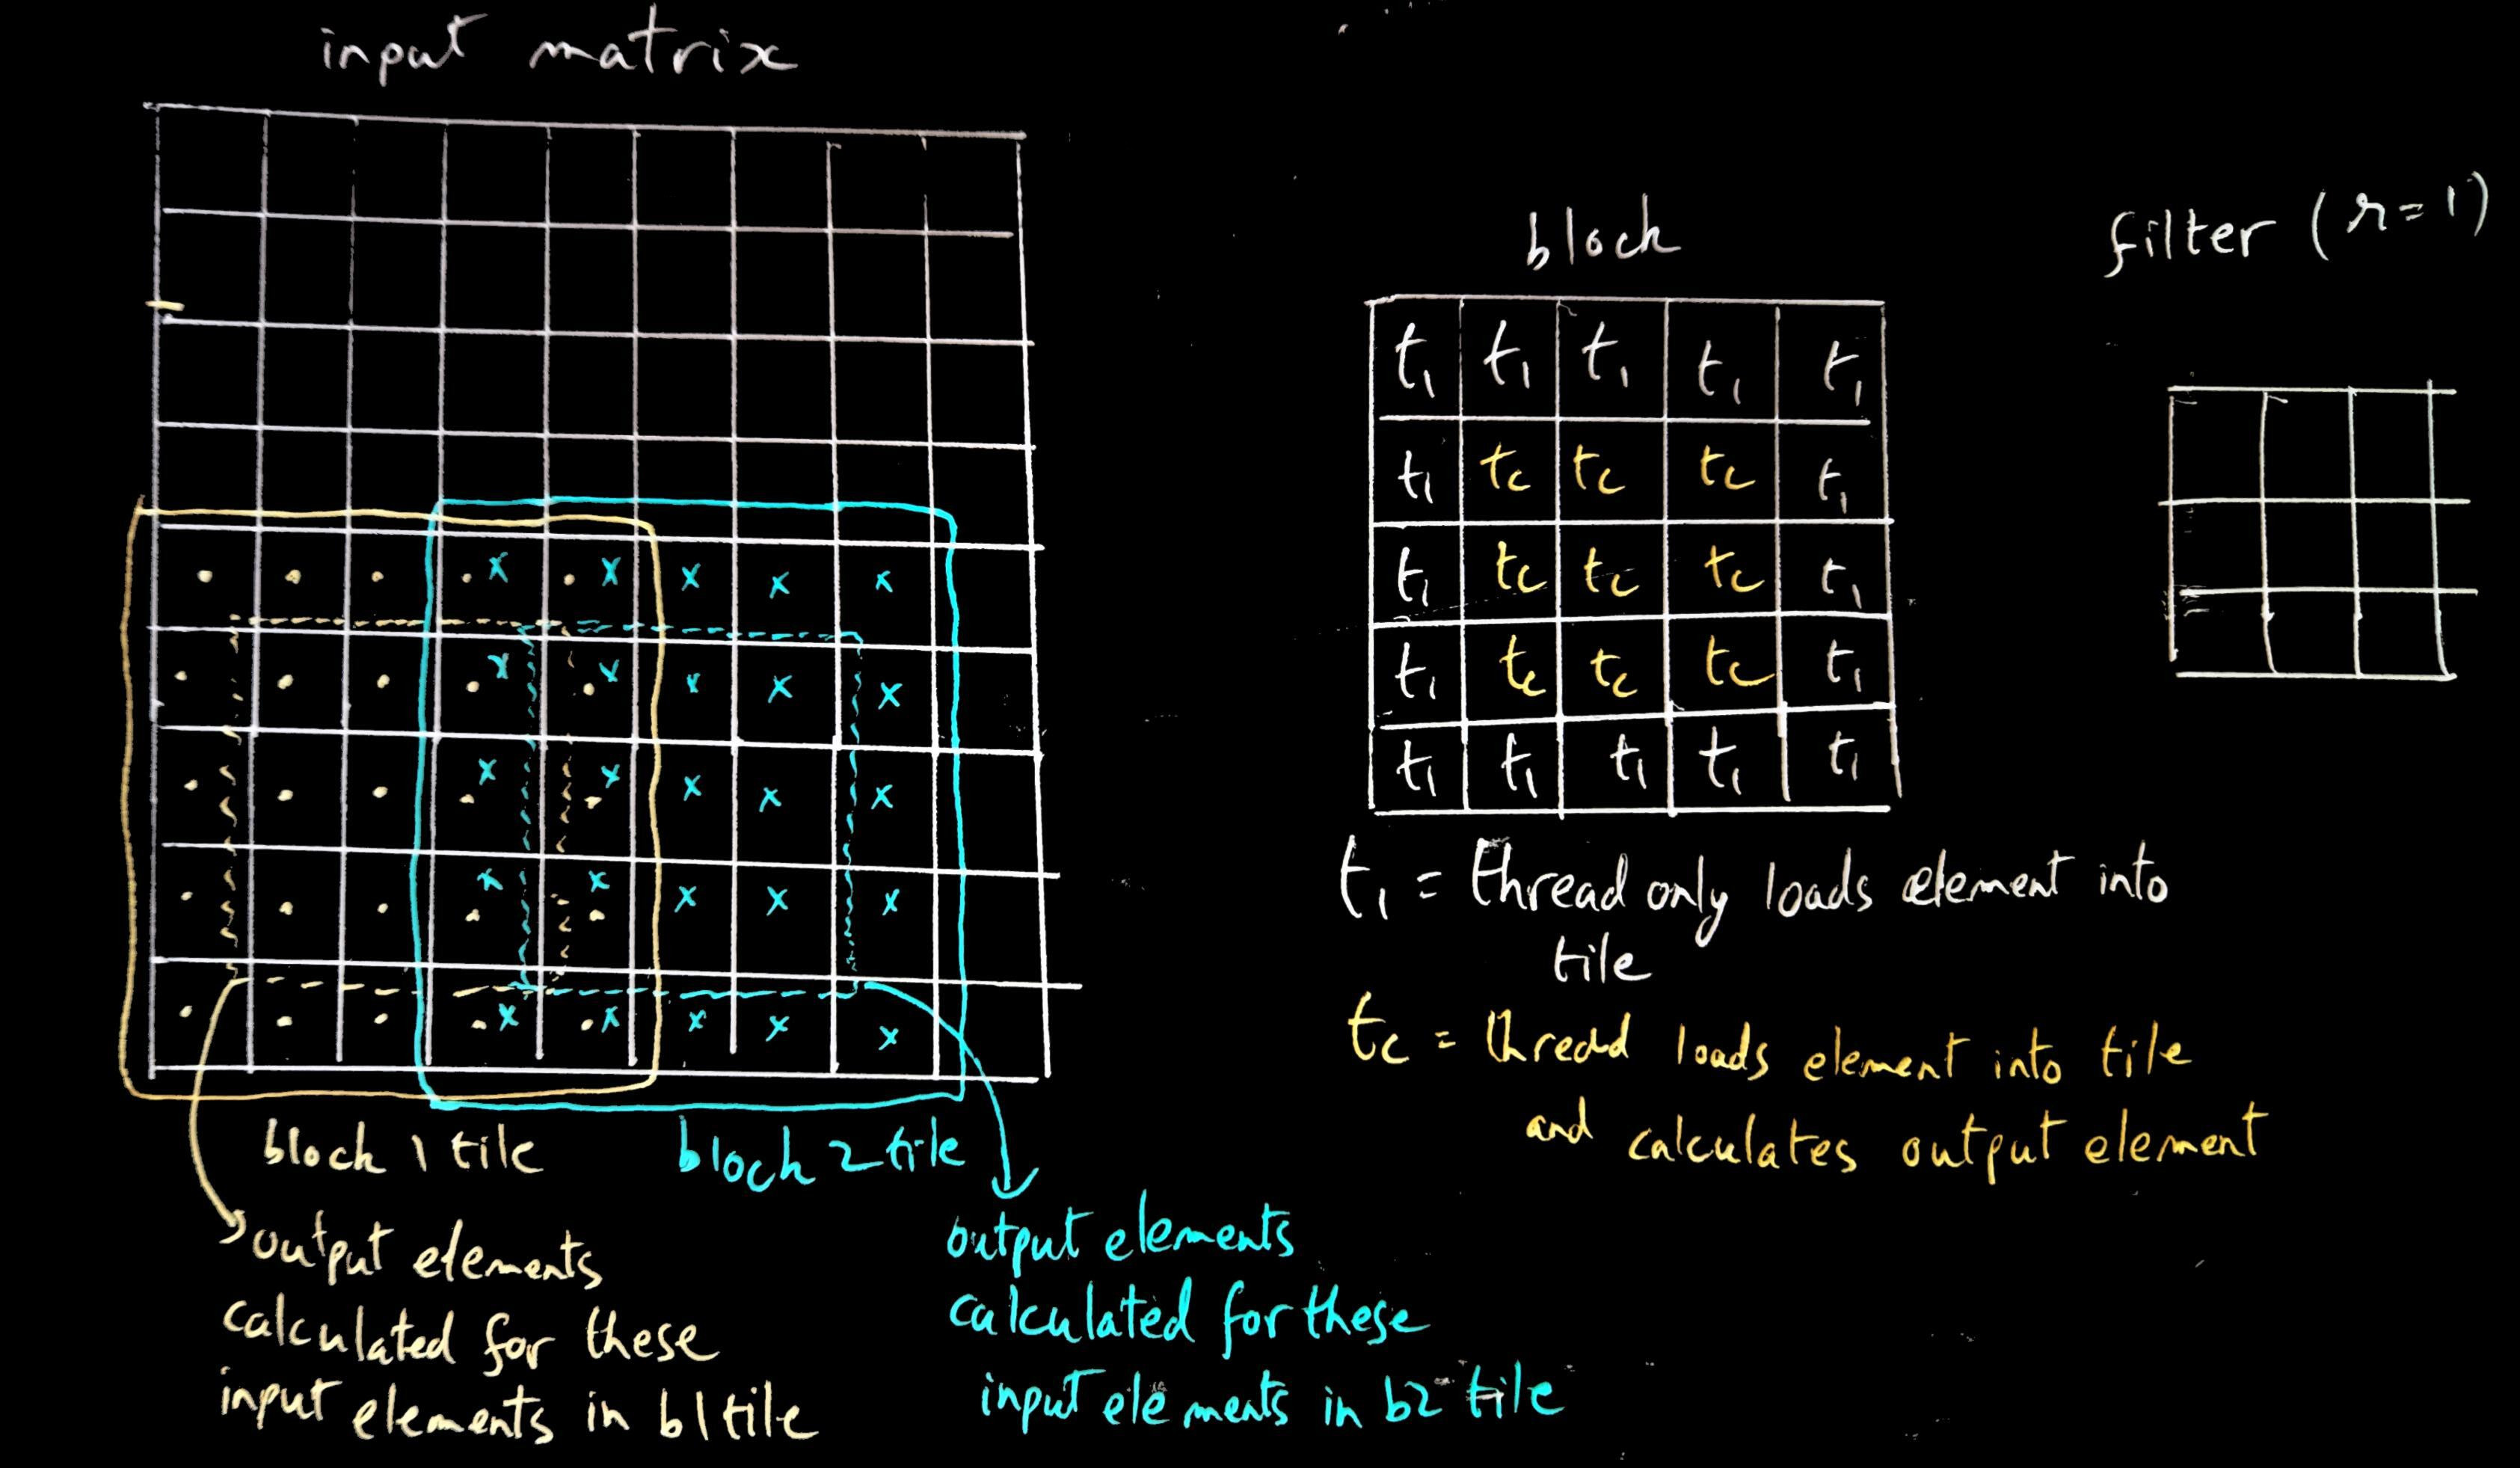 input matrix
block
filter (r=1)
t1 t1 t1 t1 t1
t1 tc tc tc t1
t1 tc tc tc t1
t1 tc tc tc t1
t1 t1 t1 t1 t1
. . . . x . x x x x
. . . . x . x x x x
. . . . x . x x x x
. . . . x . x x x x
. . . . x . x x x x
t1 = thread only loads element into
tile
tc = thread loads element into tile
and calculates output element
block 1 tile
block 2 tile
output elements
calculated for these
input elements in b1 tile
output elements
calculated for these
input elements in b2 tile